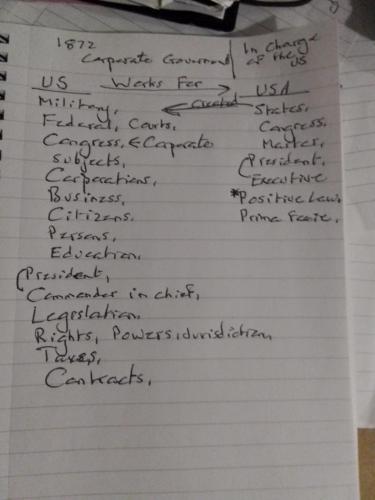 1872
Corporate Government
In Charge
of the
US
US Works For → USA
Military, ← Created States,
Federal, Courts, Congress,
Congress, ← Corporate
Subjects, President,
Corporations, Executive
Business, *Positive Law,
Citizens, Prima Facie,
Persons,
Education,
(President,
Commander in chief,
Legislation,
Rights, Powers, Jurisdiction,
Taxes,
Contracts,